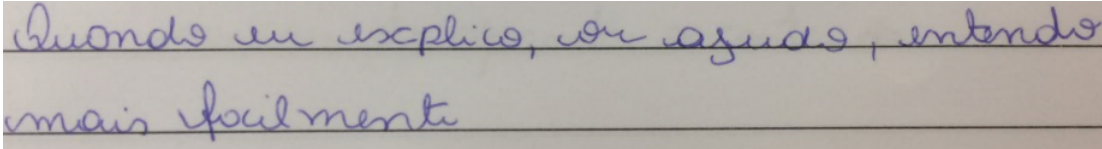 Quando eu explico, ou ajudo, entendo
mais facilmente